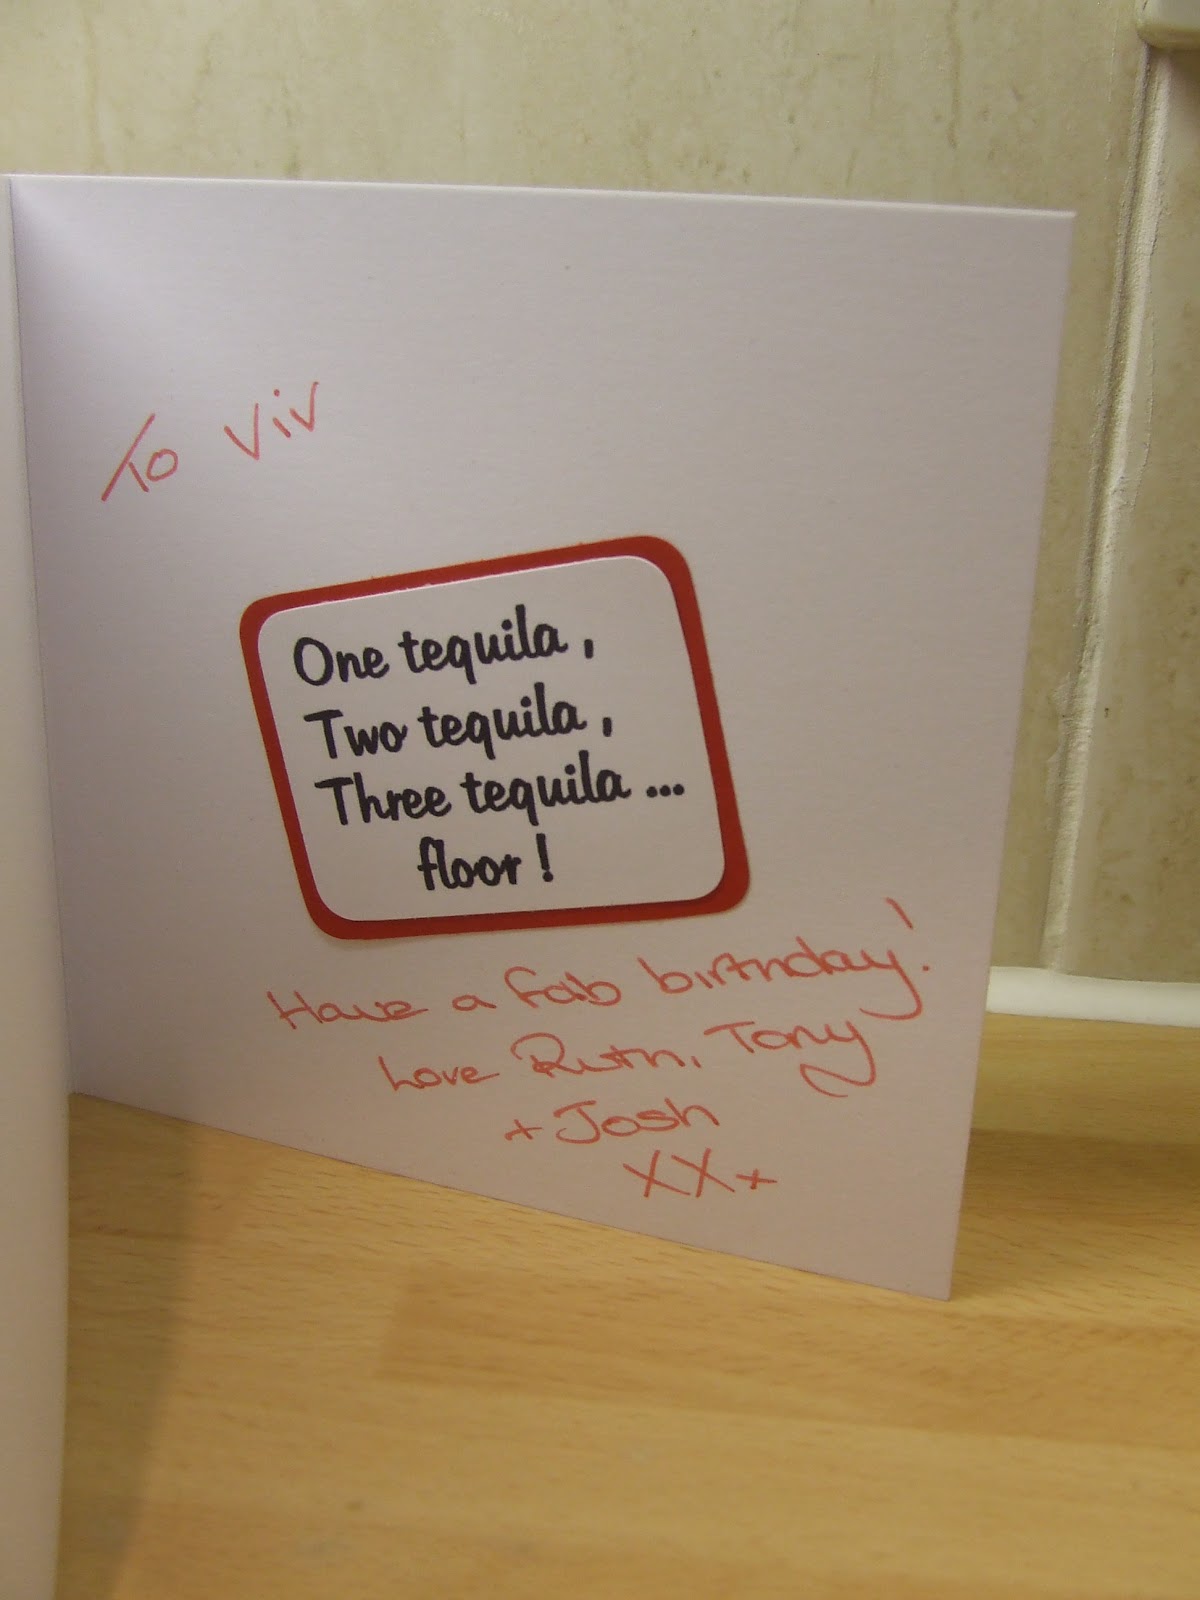 To Viv
One tequila ,
Two tequila ,
Three tequila ...
floor !
Have a fab birthday!
Love Ruth, Tony
+ Josh
XX+